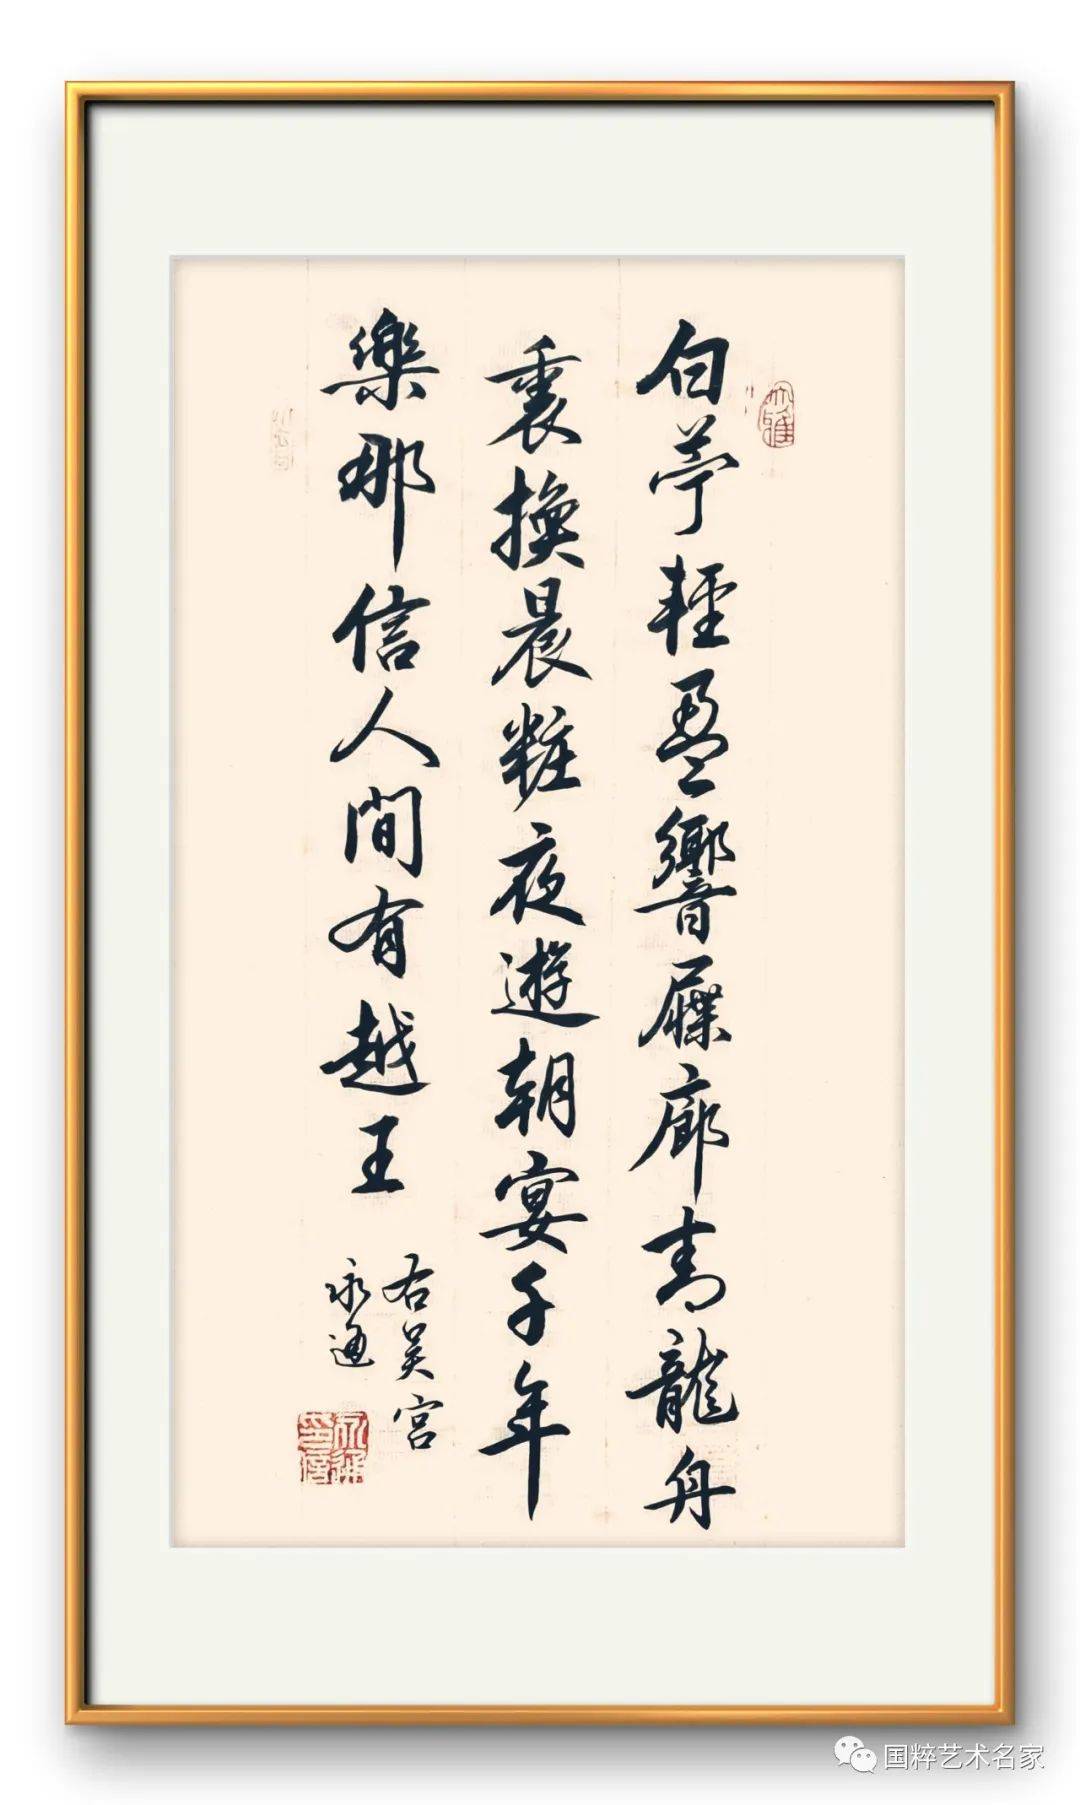 白苧輕盈響屧廊青龍舟
裏換晨粧夜遊朝宴千年
樂那信人間有越王
右吴宮
永通
永通印信
国粹艺术名家